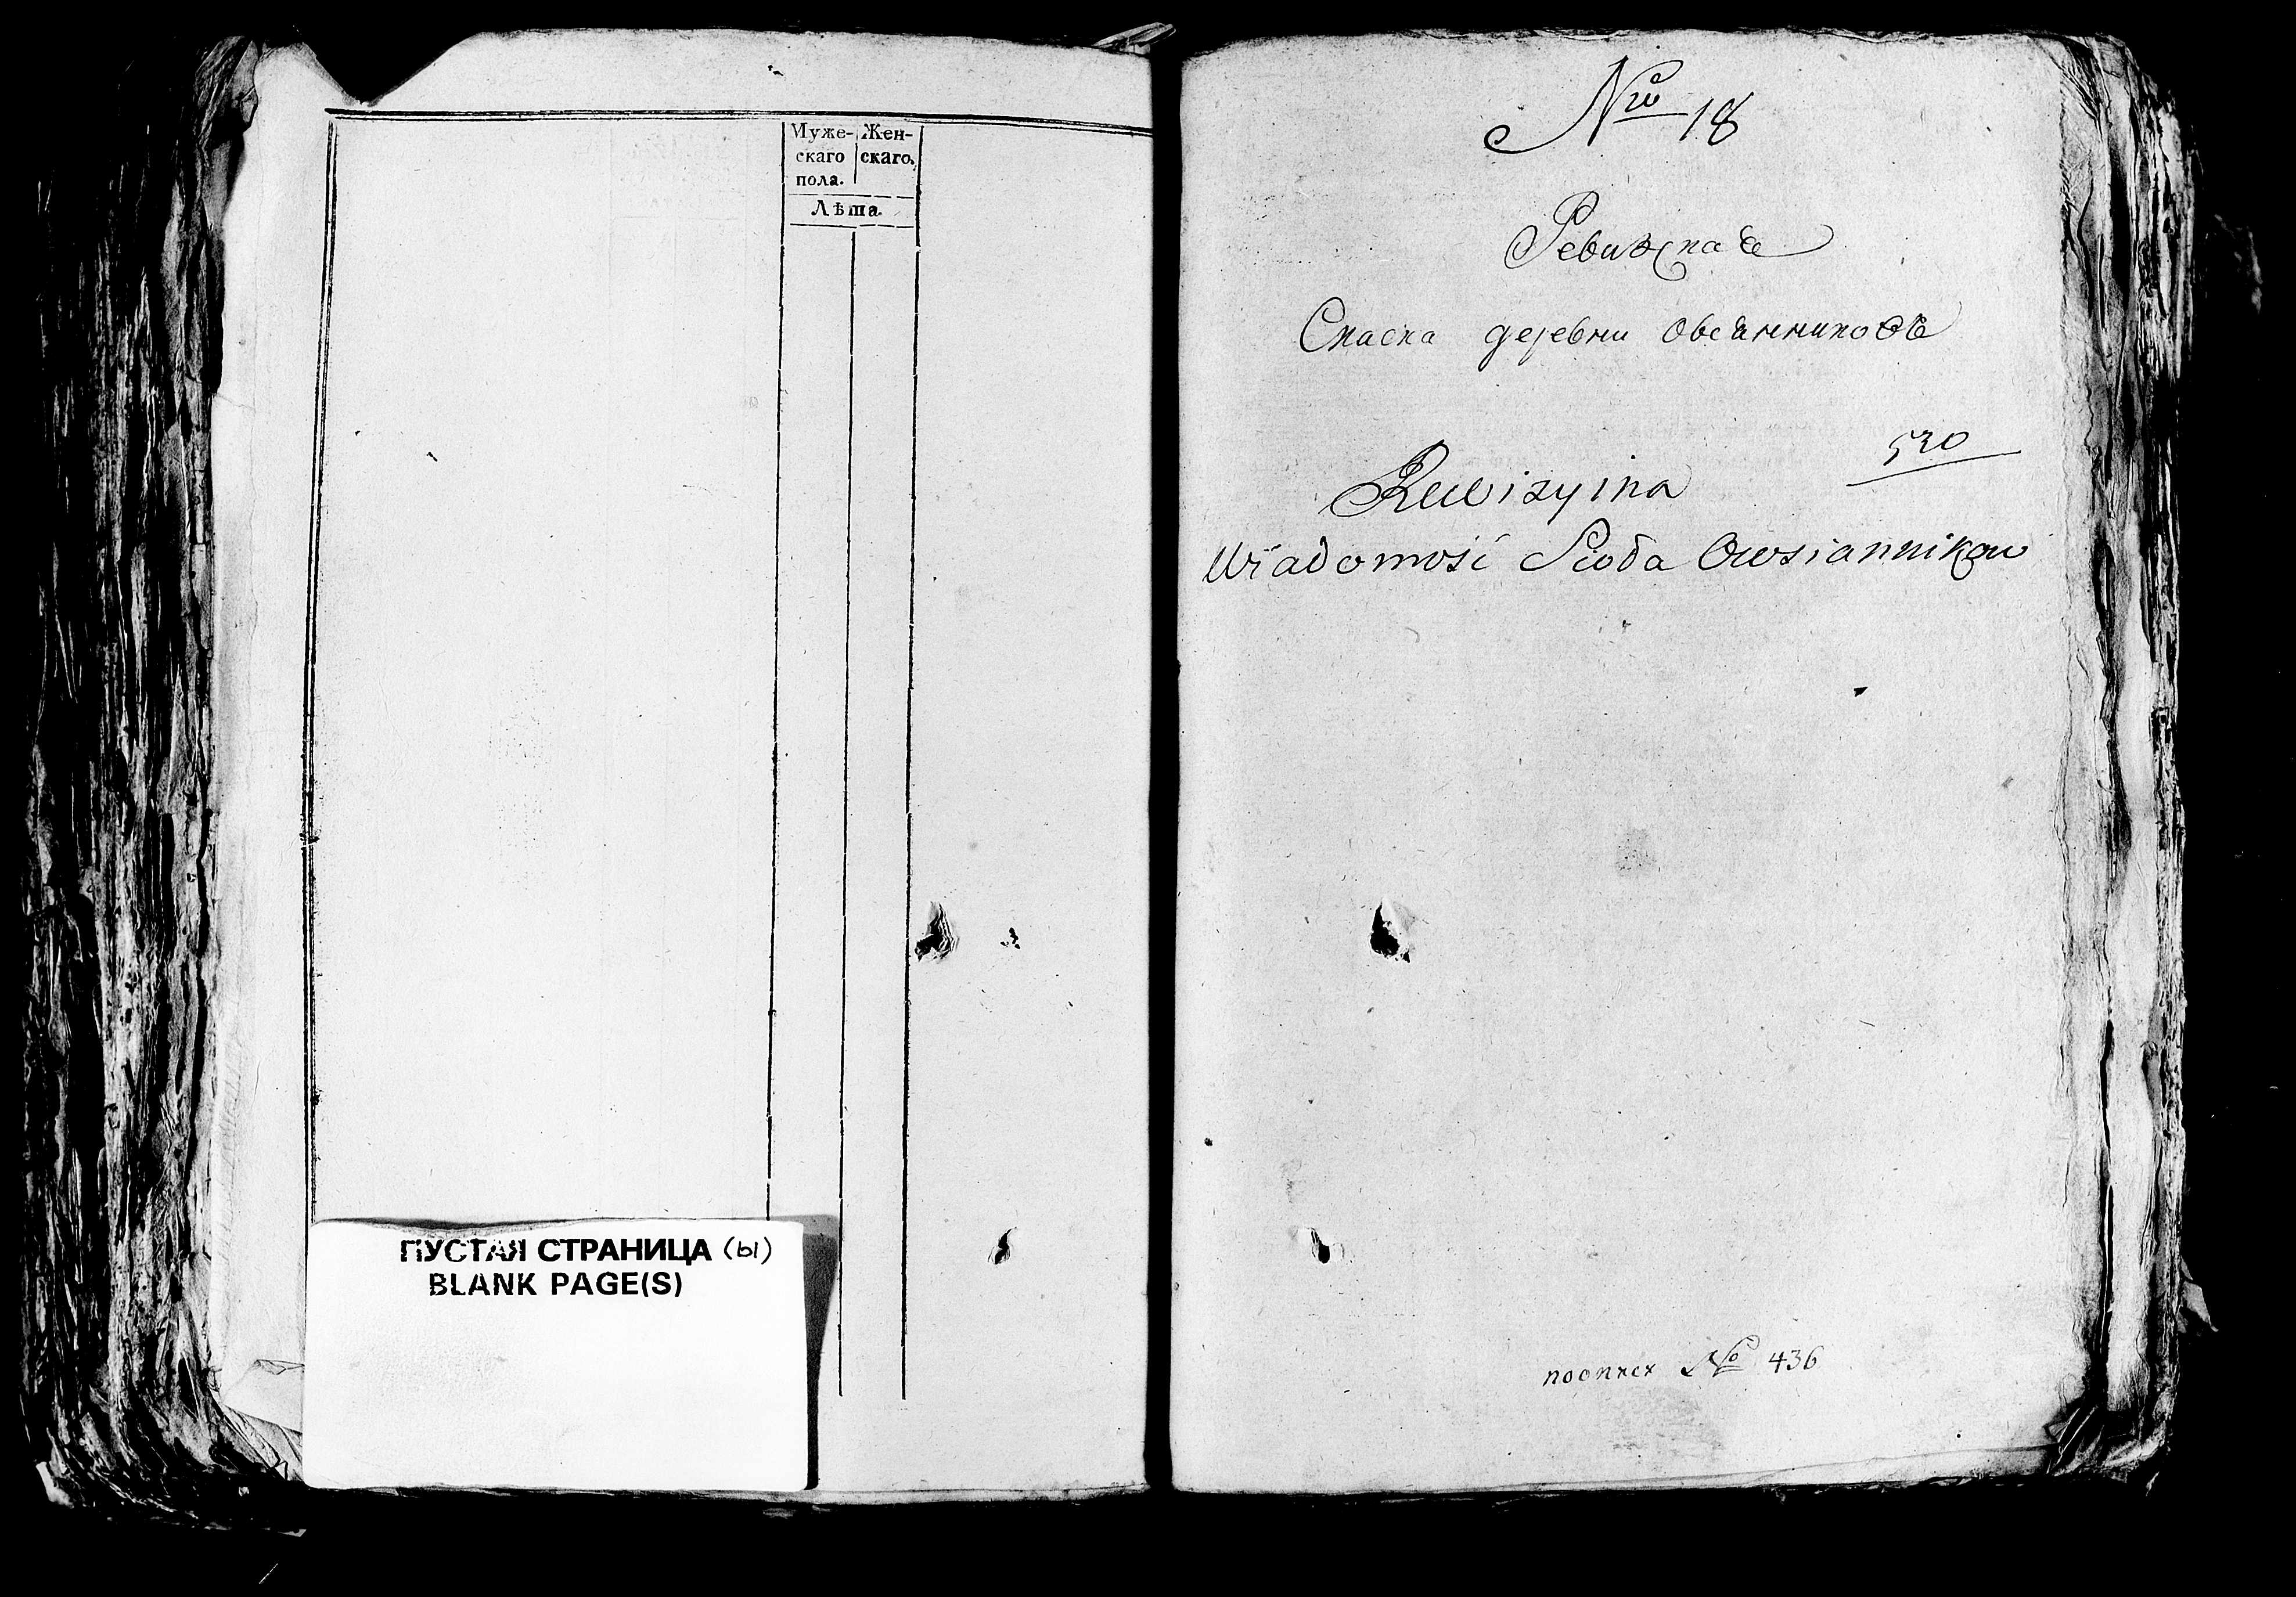 Муже- Жен-
скаго скаго.
пола.
Лѣта.
ПУСТАЯ СТРАНИЦА (ы)
BLANK PAGE(S)
Nro 18
Ревизская
Скаска деревни Овсянниковъ
530
Rewizyina
Wiadomość Sioła Owsiannikow
No 436